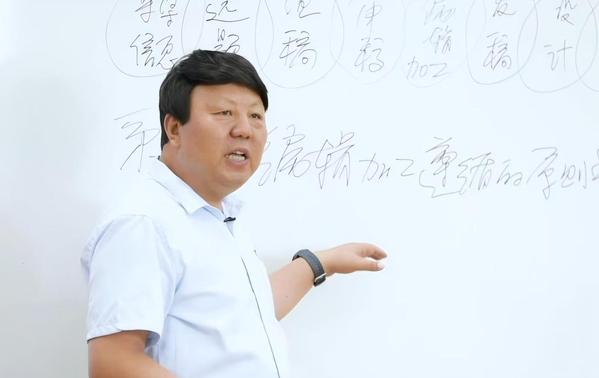 信息
选题
稿
稿
编辑加工
发稿
设计
编辑加工遵循的原则